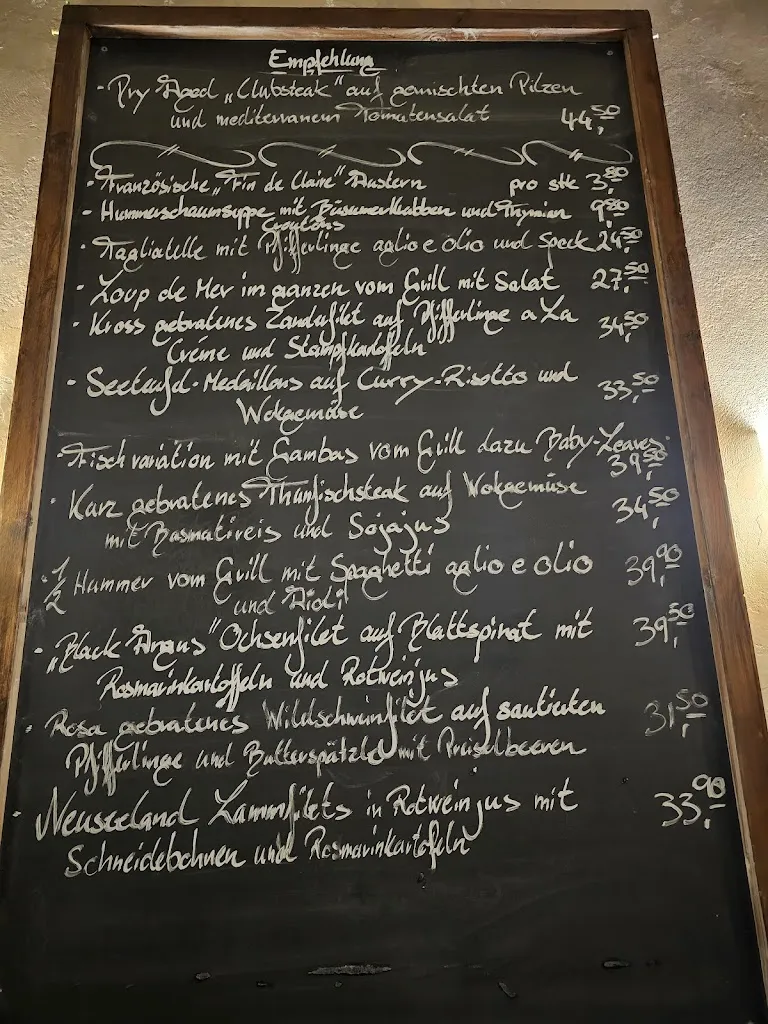 Empfehlung
- Dry Aged „Clubsteak" auf gemischten Pilzen
und mediterranem Tomatensalat 44,50
· Französische „Fin de Claire" Austern pro stk 3,80
- Hummerschaumsuppe mit Büsumerkrabben und Thymian 9,80
Croutons
· Tagliatelle mit Pfifferlinge aglio e olio und Speck 24,50
· Loup de Mer im ganzen vom Grill mit Salat 27,50
· Kross gebratenes Zanderfilet auf Pfifferlinge a La 34,50
Créme und Stampfkartoffeln
· Seeteufel-Medaillons auf Curry-Risotto und 33,50
Wokgemüse
· Fischvariation mit Gambas vom Grill dazu Baby-Leaves
39,50
· Kurz gebratenes Thunfischsteak auf Wokgemüse 34,50
mit Basmatireis und Sojajus
· 1/2 Hummer vom Grill mit Spaghetti aglio e olio 39,90
und Aioli
· „Black Angus" Ochsenfilet auf Blattspinat mit 39,50
Rosmarinkartoffeln und Rotweinjus
· Rosa gebratenes Wildschweinfilet auf sautierten 31,50
Pfifferlinge und Butterspätzle mit Preiselbeeren
· Neuseeland Lammfilets in Rotweinjus mit 33,90
Schneidebohnen und Rosmarinkartoffeln